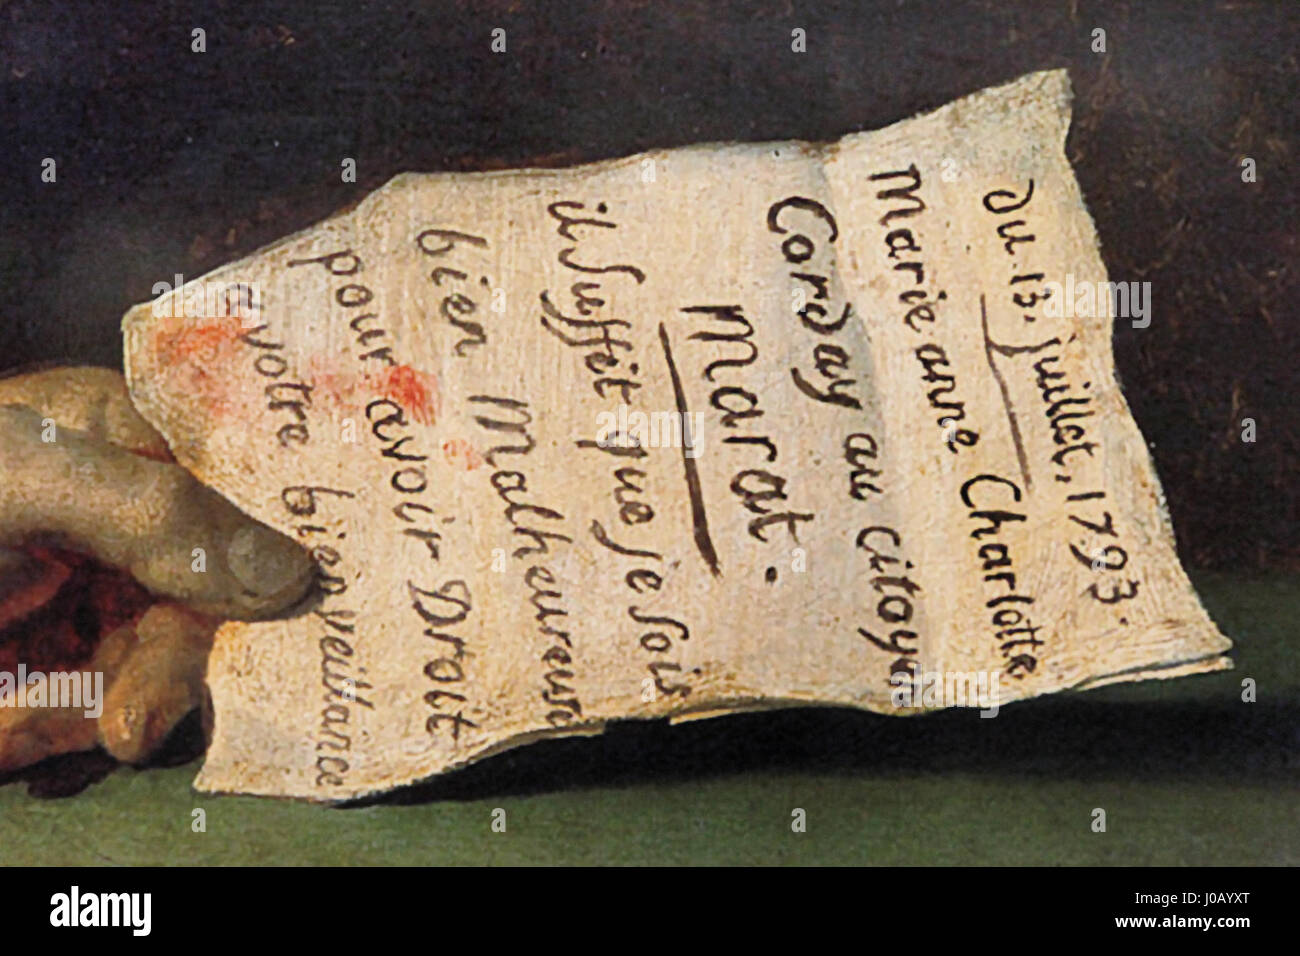 Du 13. juillet, 1793.
Marie anne Charlotte
Corday au citoyen
Marat.
il suffit que je sois
bien Malheureuse
pour avoir Droit
a votre bienveillance
a alamy stock photo
J0AYXT
www.alamy.com